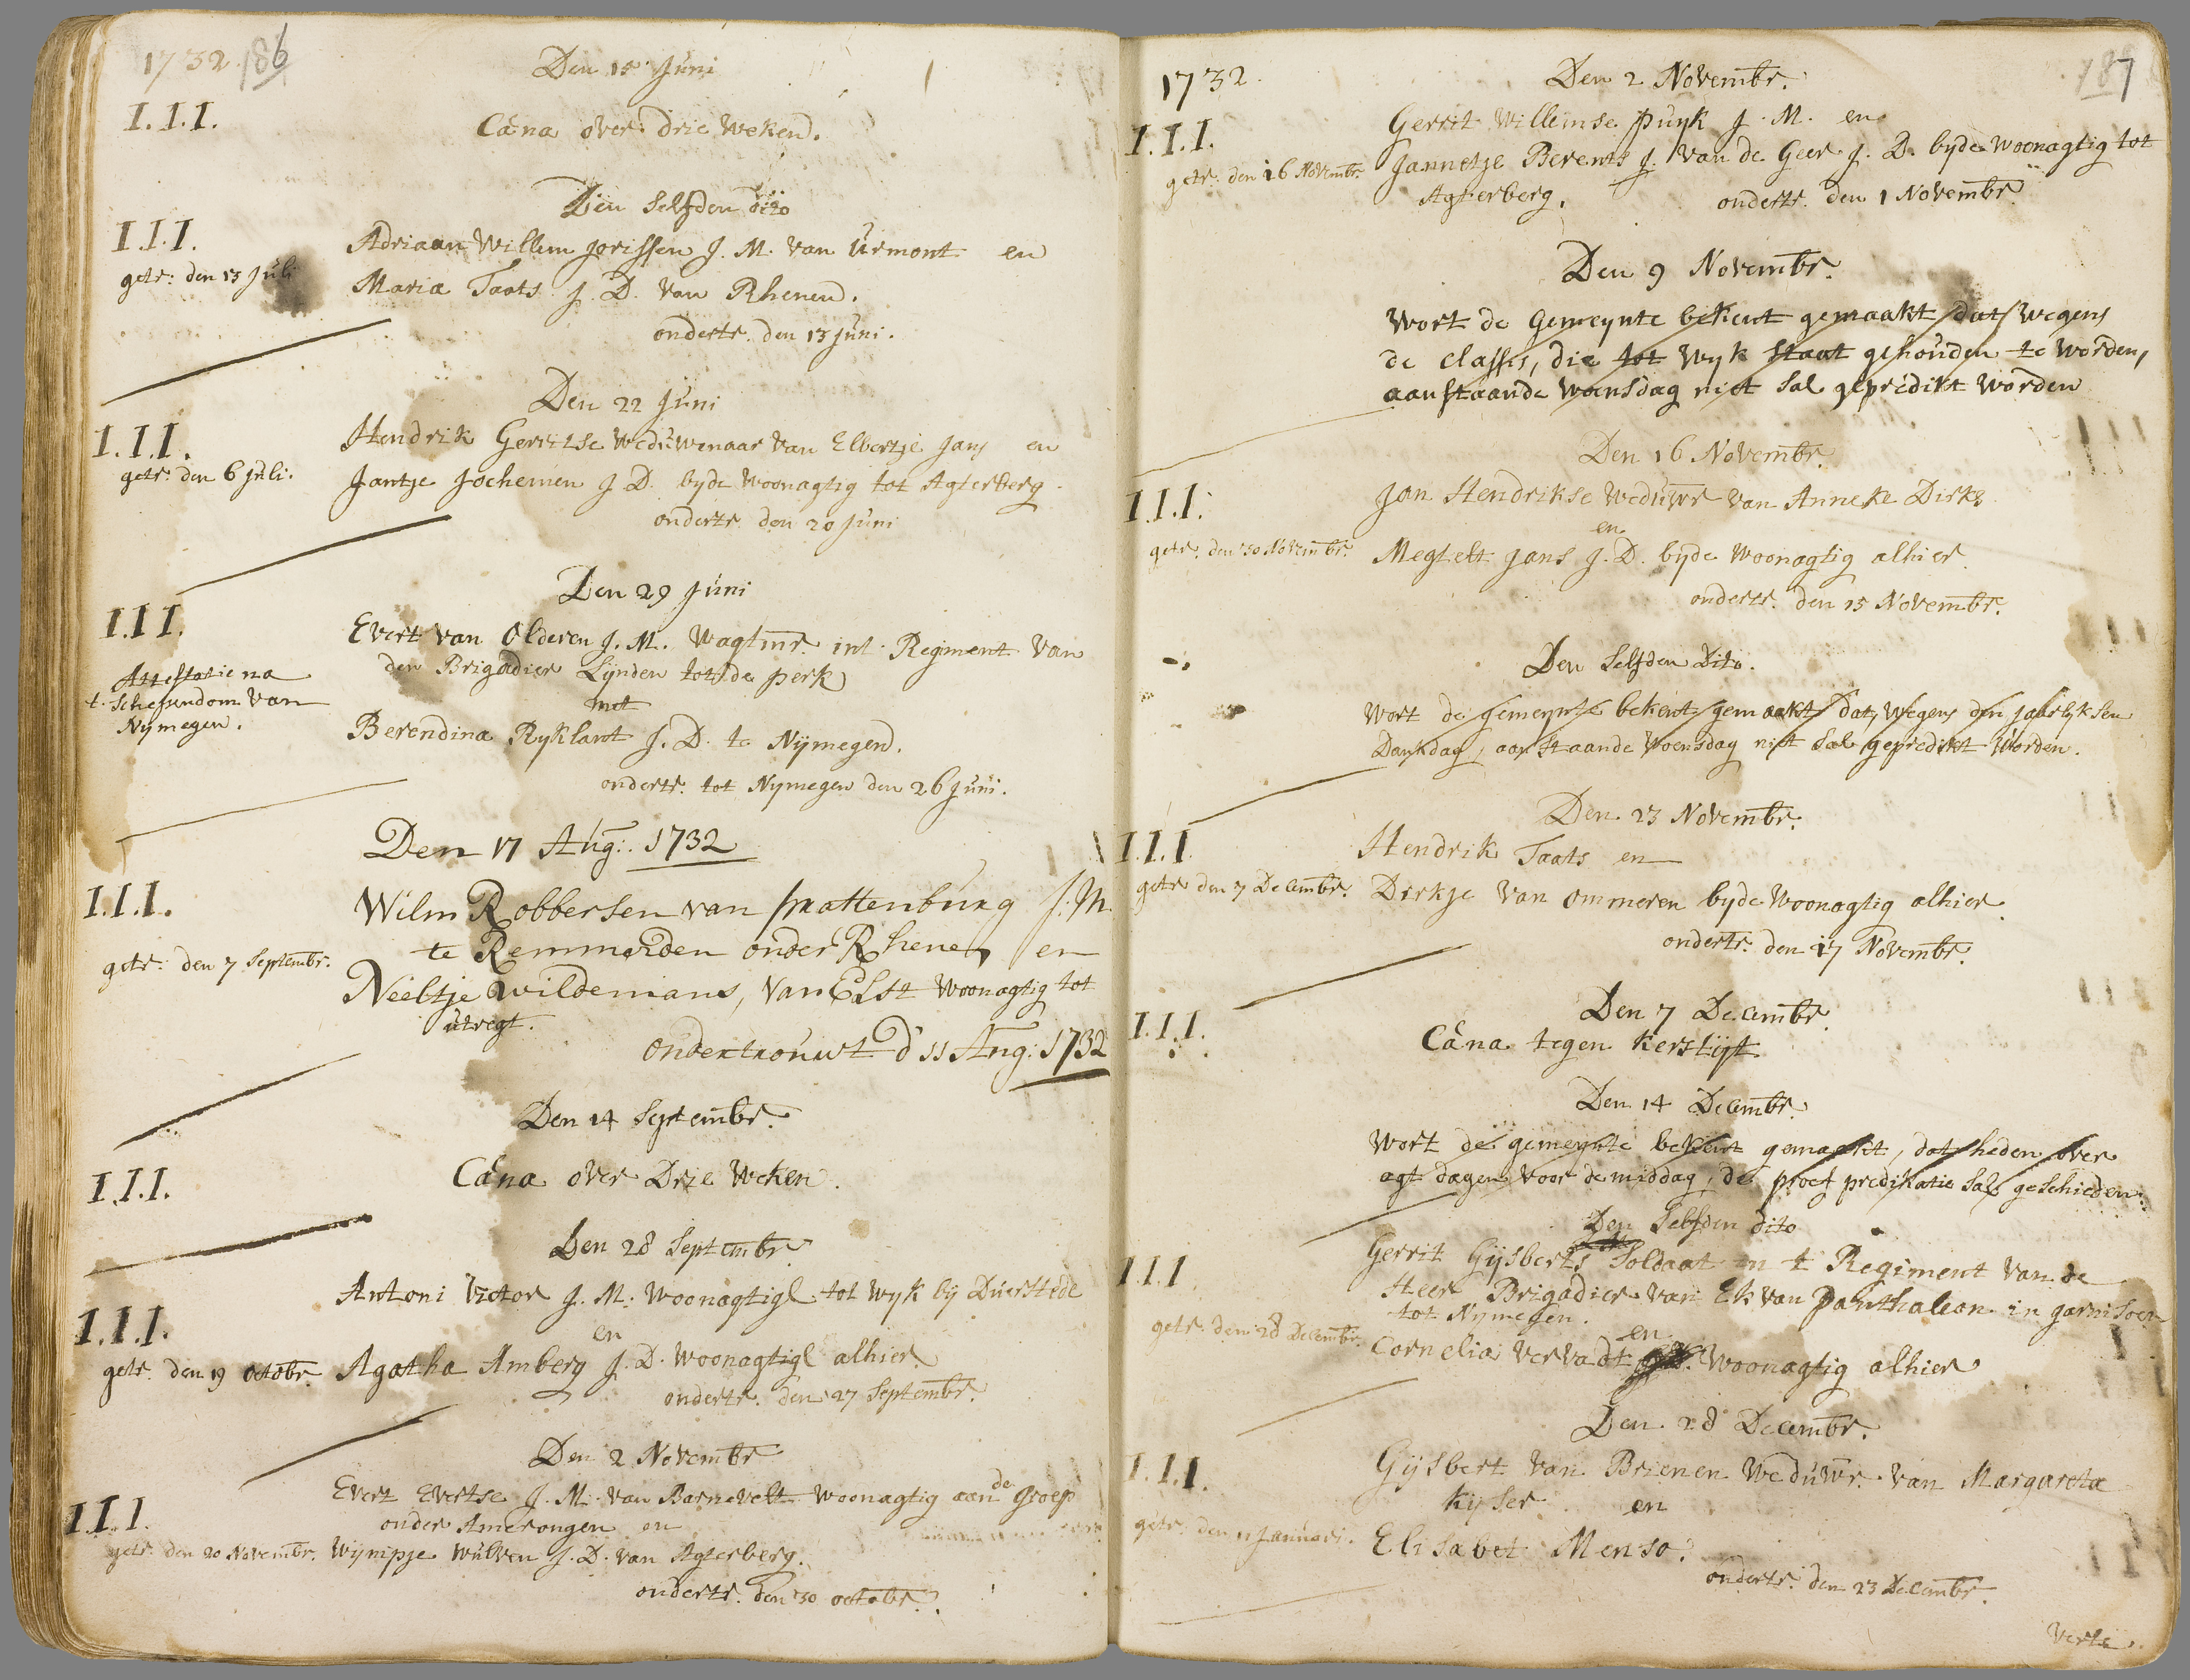 1732. 186
Den 15 Juni
I.I.I.
Cæna over drie weken.
Den selfden dito
I.I.I.
Adriaan Willem Jorissen J. M. van Urmont en
getr: den 13 Juli
Maria Taats J. D. van Rhenen.
ondertr. den 13 Juni.
Den 22 Juni
I.I.I.
Hendrik Gerritse Weduwenaar van Elbertje Jans en
getr: den 6 Juli.
Jantje Jochemen J D. byde woonagtig tot Agterberg.
ondertr. den 20 Juni
Den 29 Juni
I.I.I.
Evert van Olderen J. M. Wagtmr. int Regiment van
den Brigadier Lynden tot de perk
Attestatie na
t. Schependom van
Nymegen.
met
Berendina Ryklant J. D. te Nymegen.
ondertr. tot Nymegen den 26 Juni.
Den 17 Aug: 1732
I.I.I.
Wilm Robbersen van prattenburg J. M.
te Remmerden onder Rhenen en
getr: den 7 Septembr.
Neeltje Wildemans, van Elst woonagtig tot
utregt.
ondertrouwt d 11 Aug: 1732
Den 14 Septembr.
I.I.I.
Cæna over Drie weken.
Den 28 Septembr.
I.I.I.
Antoni Victor J. M. woonagtig tot Wyk by Duerstede
en
getr. den 19 octobr.
Agatha Amberg J. D. woonagtig alhier.
ondertr. den 27 Septembr.
Den 2 Novembr
I.I.I.
Evert Evertse J. M. van Barnevelt woonagtig aan de Groep
onder Amerongen en
getr. den 20 Novembr.
Wijmpje Wulven J. D. van Agterberg.
ondertr. den 30 octobr.
1732. 187
Den 2 Novembr.
I.I.I.
Gerrit Willemse puyk J. M. en
getr. den 16 Novembr.
Jannetje Berents J. van de Geer J. D. byde woonagtig tot
Agterberg.
ondertr. den 1 Novembr.
Den 9 Novembr.
Wort de Gemeynte bekent gemaakt dat wegens
de classis, die tot Wyk staat gehouden te worden,
aanstaande woensdag niet sal gepredikt worden
Den 16 Novembr.
I.I.I.
Jan Hendrikse Weduwr van Anneke Dirks
en
getr. den 30 Novembr.
Megtelt Jans J. D. byde woonagtig alhier.
ondertr. den 15 Novembr.
Den Selfden Dito.
Wort de gemeynte bekent gemaakt dat, wegens den jaarlyksen
Dankdag, aanstaande woensdag niet sal gepredikt worden.
Den 23 Novembr.
I.I.I
Hendrik Taats en
getr den 7 Decembr.
Dirkje van Ommeren byde woonagtig alhier.
ondertr. den 17 Novembr.
Den 7 Decembr.
I.I.I.
Cæna tegen Kerstijt.
Den 14 Decembr.
Wort de gemeynte bekent gemaakt, dat heden over
agt dagen voor de middag, de proef predikatie sal geschieden.
Den selfden dito
I.I.I
Gerrit Gijsberts Soldaat in t Regiment van de
Heer Brigadier van Ek van Panthaleon in garnisoen
tot Nymegen.
en
getr. den 28 Decembr.
Cornelia Vervadt woonagtig alhier
Den 28 Decembr.
I.I.I.
Gijsbert van Brienen Weduwr. van Margareta
Kijser en
getr. den 11 Januari.
Elisabet Menso.
ondertr. den 23 Decembr.
Verte.